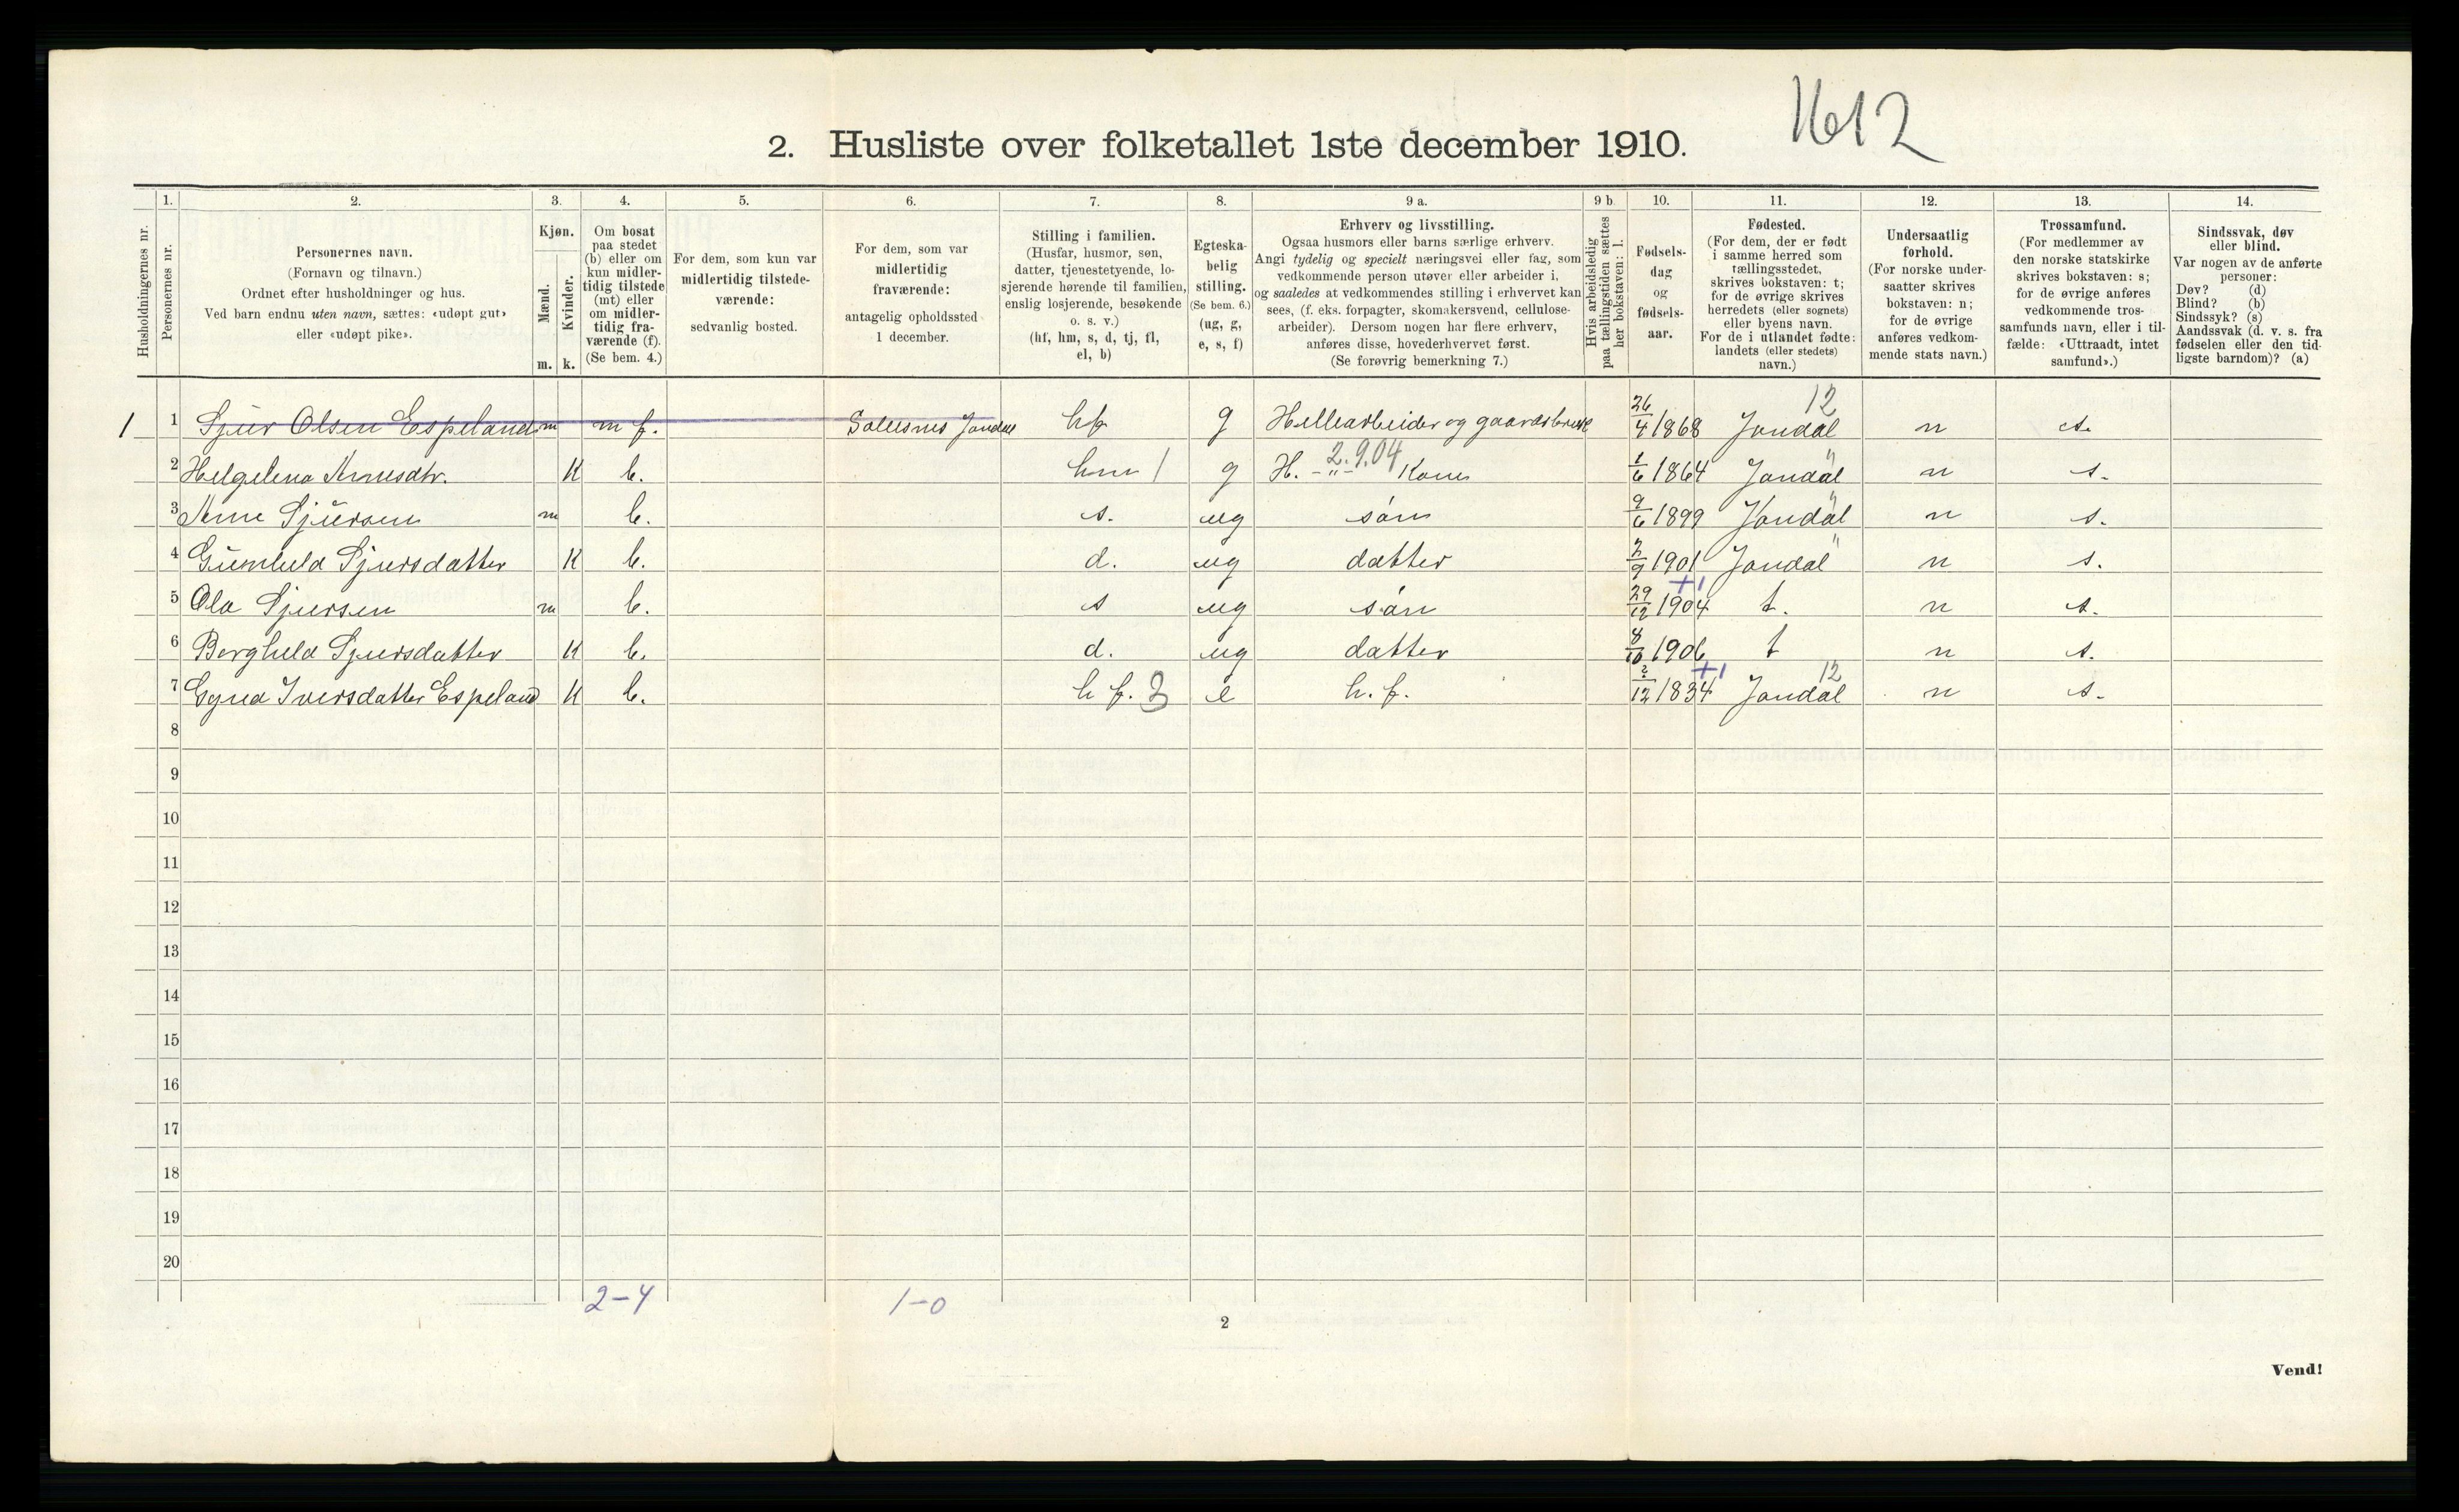 1612
2. Husliste over folketallet 1ste december 1910.
1. 2. 3. 4. 5. 6. 7. 8. 9 a. 9 b. 10. 11. 12. 13. 14.
Husholdningernes nr.
Personernes nr.
Personernes navn.
(Fornavn og tilnavn.)
Ordnet efter husholdninger og hus.
Ved barn endnu uten navn, sættes: «udøpt gut»
eller «udøpt pike».
Kjøn.
Mænd.
Kvinder.
m. k.
Om bosat
paa stedet
(b) eller om
kun midler-
tidig tilstede
(mt) eller
om midler-
tidig fra-
værende (f).
(Se bem. 4.)
For dem, som kun var
midlertidig tilstede-
værende:
sedvanlig bosted.
For dem, som var
midlertidig
fraværende:
antagelig opholdssted
1 december.
Stilling i familien.
(Husfar, husmor, søn,
datter, tjenestetyende, lo-
sjerende hørende til familien,
enslig losjerende, besøkende
o. s. v.)
(hf, hm, s, d, tj, fl,
el, b)
Egteska-
belig
stilling.
(Se bem. 6.)
(ug, g,
e, s, f)
Erhverv og livsstilling.
Ogsaa husmors eller barns særlige erhverv.
Angi tydelig og specielt næringsvei eller fag, som
vedkommende person utøver eller arbeider i,
og saaledes at vedkommendes stilling i erhvervet kan
sees, (f. eks. forpagter, skomakersvend, cellulose-
arbeider). Dersom nogen har flere erhverv,
anføres disse, hovederhvervet først.
(Se forøvrig bemerkning 7.)
Hvis arbeidsledig
paa tællingstiden sættes
her bokstaven: l.
Fødsels-
dag
og
fødsels-
aar.
Fødested.
(For dem, der er født
i samme herred som
tællingsstedet,
skrives bokstaven: t;
for de øvrige skrives
herredets (eller sognets)
eller byens navn.
For de i utlandet fødte:
landets (eller stedets)
navn.)
Undersaatlig
forhold.
(For norske under-
saatter skrives
bokstaven: n;
for de øvrige
anføres vedkom-
mende stats navn.)
Trossamfund.
(For medlemmer av
den norske statskirke
skrives bokstaven: s;
for de øvrige anføres
vedkommende tros-
samfunds navn, eller i til-
fælde: «Uttraadt, intet
samfund».)
Sindssvak, døv
eller blind.
Var nogen av de anførte
personer:
Døv? (d)
Blind? (b)
Sindssyk? (s)
Aandssvak (d. v. s. fra
fødselen eller den tid-
ligste barndom)? (a)
1 1 Sjur Olsen Espeland m m f. Jondal hf g Hellearbeider og gaardsbruk 26/4 1868 Jondal 12 n s.
2 Helgelena Arnesdtr. K b. hm 1 g H. -"- 2.9.04 Kone 1/6 1864 Jondal " n s.
3 Arne Sjursen m b. s. ug søn 9/6 1899 Jondal " n s.
4 Gunhild Sjursdatter K b. d. ug datter 2/9 1901 Jondal " n s.
5 Ola Sjursen m b. s ug søn 29/12 1904 +1 t. n s.
6 Borghild Sjursdatter K b. d. ug datter 8/10 1906 t n s.
7 Gyria Iversdatter Espeland K b. h f. 3 e h. f. 2/12 1834 +1 Jondal 12 n s.
8
9
10
11
12
13
14
15
16
17
18
19
20
2-4 1-0
2
Vend!